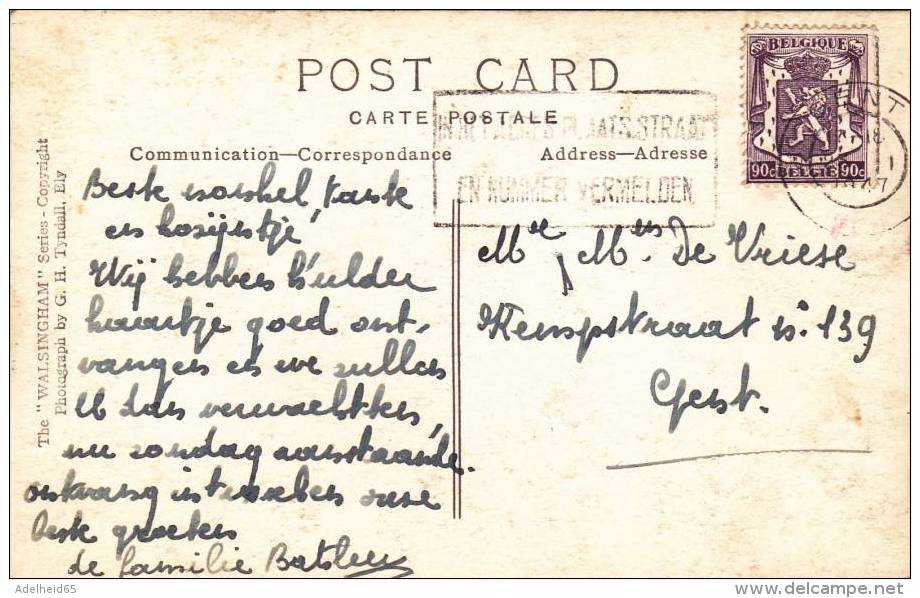 POST CARD
CARTE POSTALE
Communication—Correspondance
Address—Adresse
The "WALSINGHAM" Series - Copyright
Photograph by G. H. Tyndall, Ely
BELGIQUE
90c BELGIE 90c
PLAATS, STRAAT
EN NUMMER VERMELDEN
GENT
Beste nonkel, tante
en kozijntje
Wij hebben h'ulder
kaartje goed ont-
vangen en we zullen
U dan verwachten,
nu zondag aanstaande.
ontvang intusschen onze
beste groeten
de familie
Mr & Mme De Vriese
Kempstraat n. 139
Gent.
Adelheid65
delcampe.net